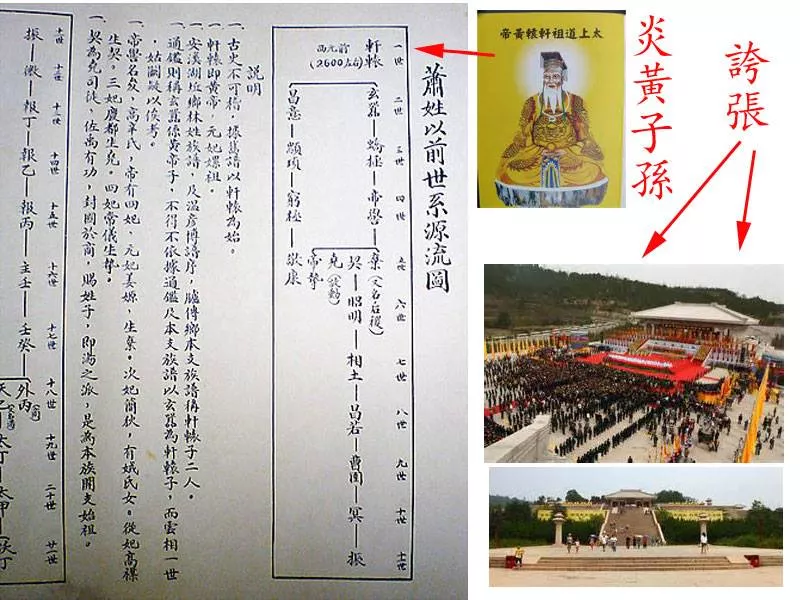 太上道祖軒轅黃帝
炎黃子孫
誇張
蕭姓以前世系源流圖
一世 二世 三世 四世 五世 六世 七世 八世 九世 十世 十一世
軒轅
西元前
(2600左右)
玄囂—蟜極—帝嚳
棄(又名后稷)
契—昭明—相土—昌若—曹圉—冥—振
堯(放勳)
帝摯
昌意—顓頊—窮極—敬康
說明
一、古史不可稽,據舊譜以軒轅為始。
一、軒轅即黃帝,元妃嫘祖。
一、安溪湖坵鄉林姓族譜,及溫彥博譜序,臚傳鄉本支族譜稱軒轅子二人。
通鑑則稱玄囂係黃帝子,不得不依據通鑑及本支族譜以玄囂為軒轅子,而雲相一世
,姑闕疑以俟考。
一、帝嚳名夋,高辛氏,帝有四妃,元妃姜嫄,生棄。次妃簡狄,有娀氏女。從妃高禖
生契。三妃慶都生堯。四妃常儀生摯。
一、契為堯司徒,佐禹有功,封國於商,賜姓子,即湯之派,是為本族開支始祖。
十二世 十三世 十四世 十五世 十六世 十七世 十八世 十九世 二十世 廿一世
振—微—報丁—報乙—報丙—主壬—壬癸
外丙
天乙
太丁—太甲—沃丁